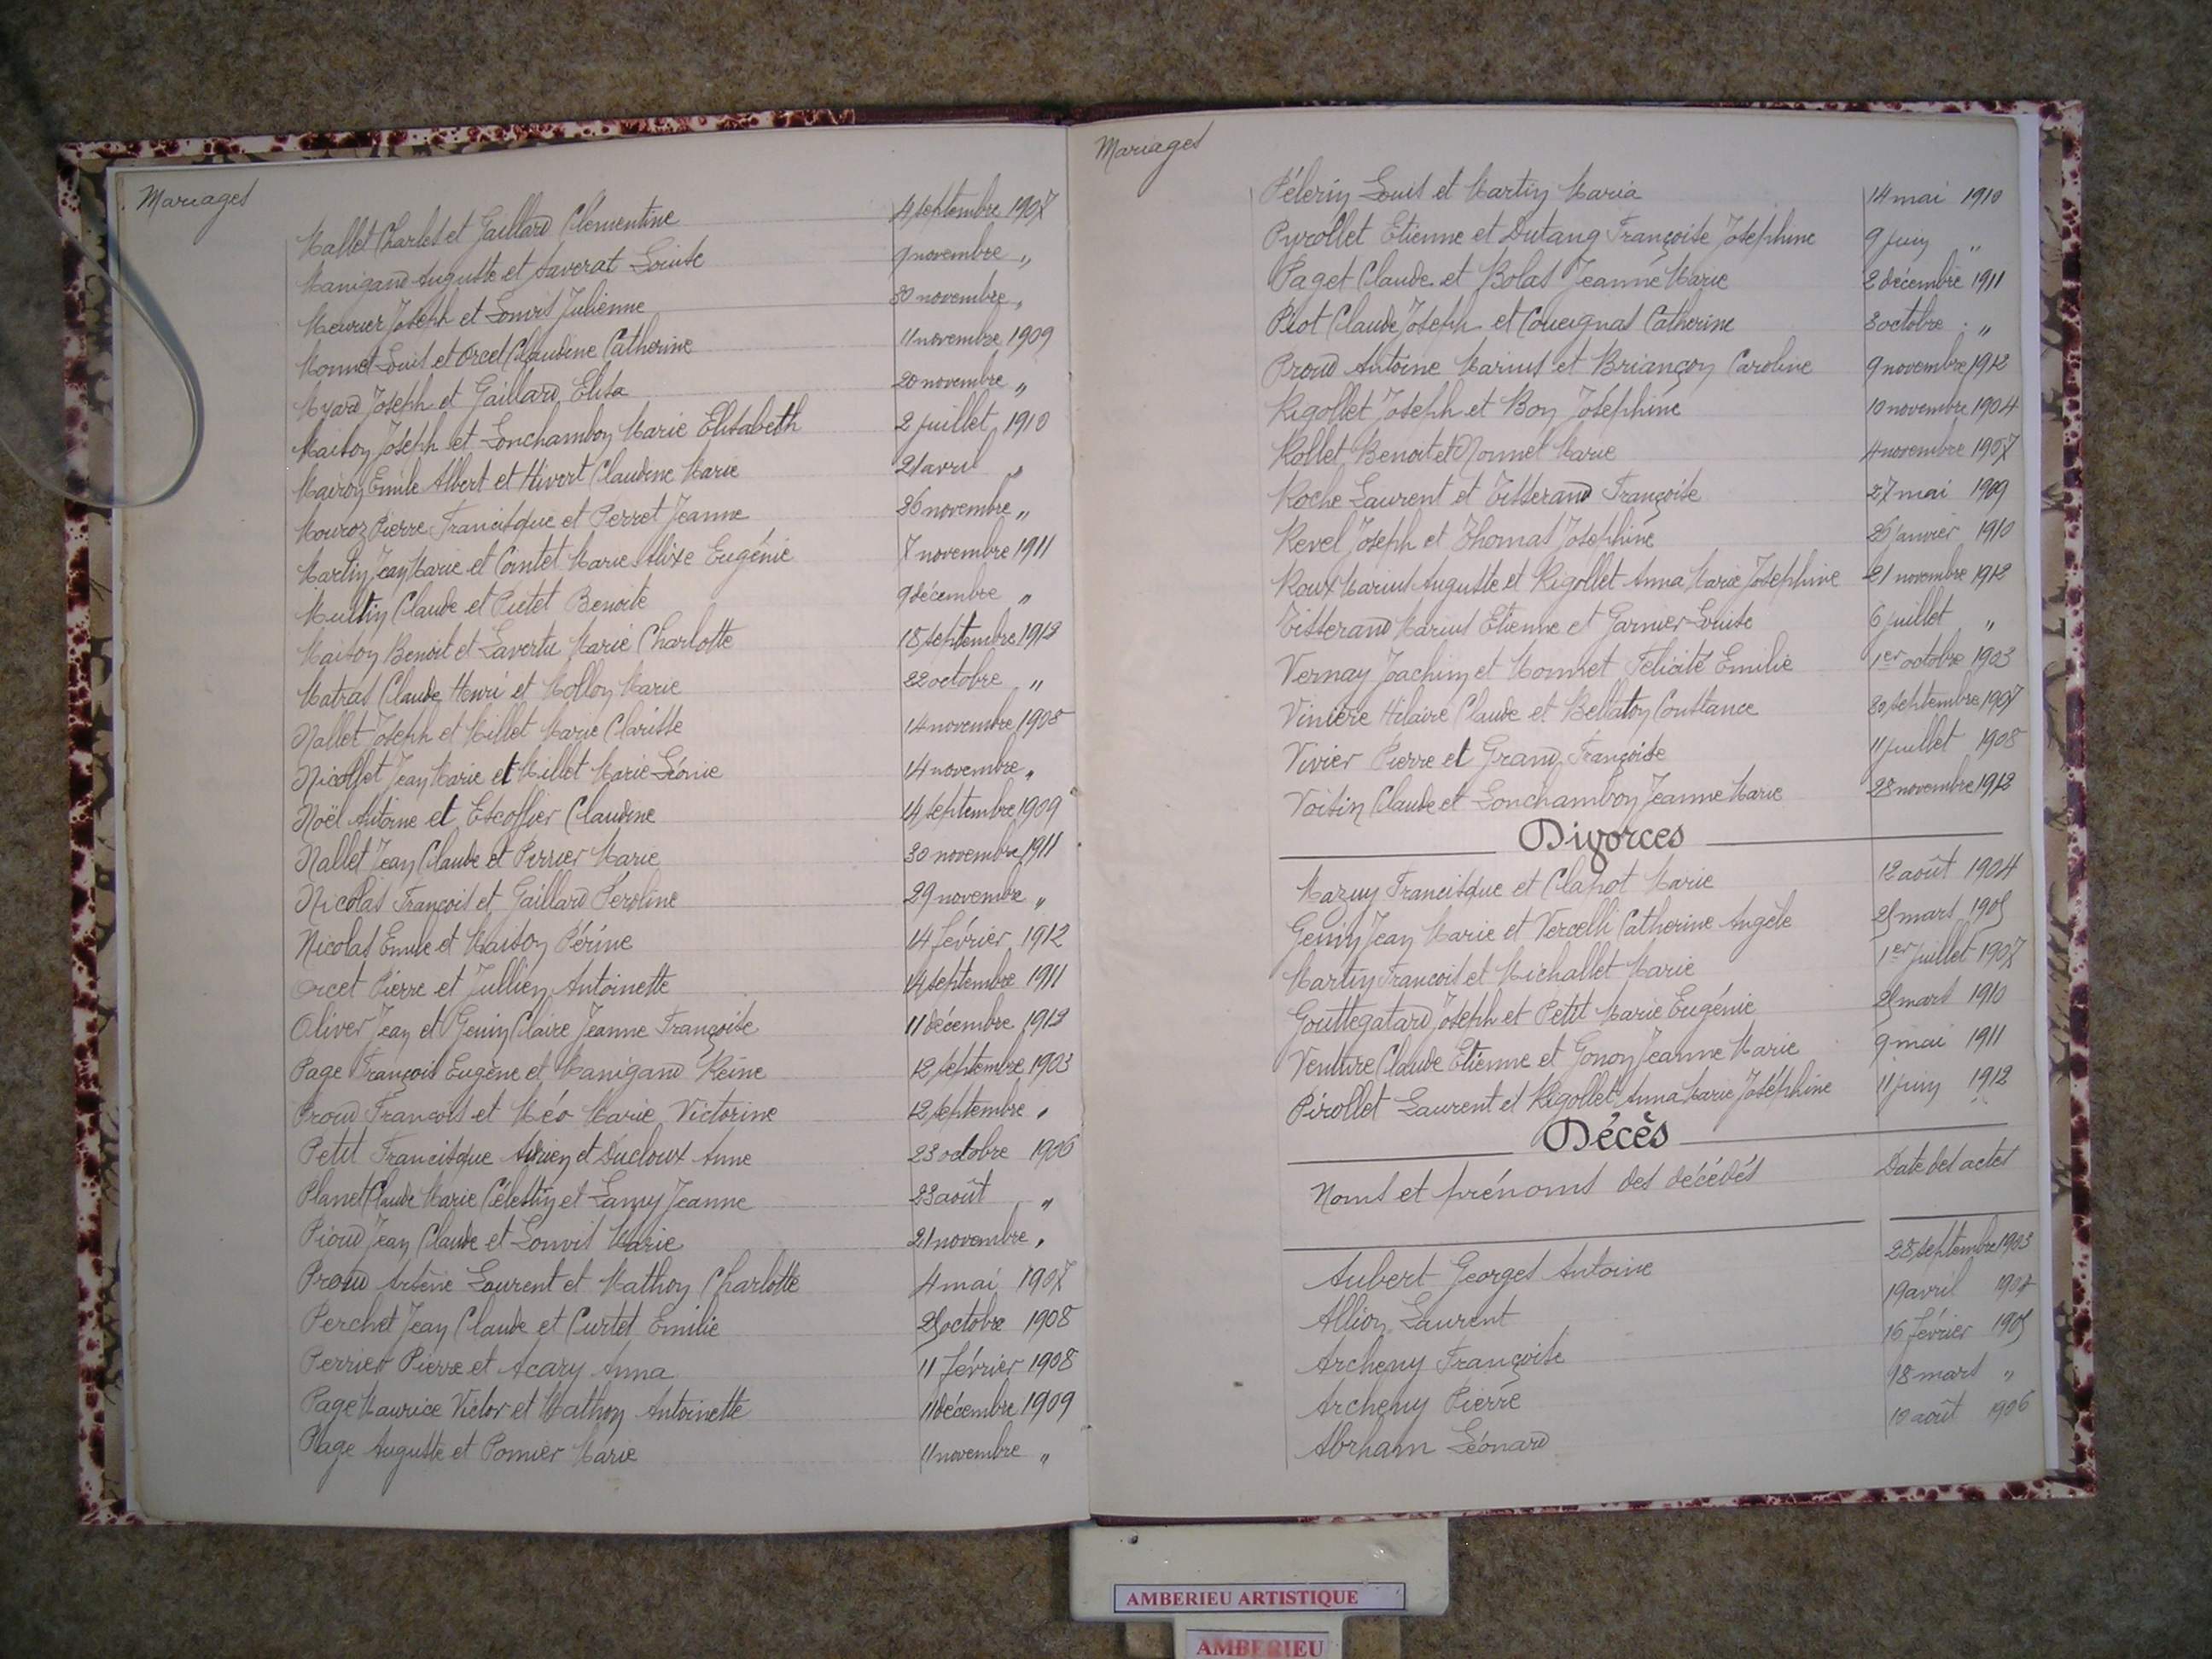 Mariages
Mallet Charles et Gaillard Clémentine 4 septembre 1907
Manigand Auguste et Saverat Louise 9 novembre "
Meurier Joseph et Louvis Julienne 30 novembre "
Monnet Louis et Orcel Claudine Catherine 11 novembre 1909
Myard Joseph et Gaillard Elisa 20 novembre "
Maison Joseph et Lonchambon Marie Elisabeth 2 juillet 1910
Mairon Emile Albert et Hivert Claudine Marie 21 avril "
Mouroz Pierre Francisque et Perret Jeanne 26 novembre "
Martin Jean Marie et Cointet Marie Alixe Eugénie 7 novembre 1911
Multin Claude et Putet Benoite 9 décembre "
Maison Benoit et Lavertu Marie Charlotte 18 septembre 1912
Matras Claude Henri et Mollon Marie 22 octobre "
Nallet Joseph et Millet Marie Clarisse 14 novembre 1908
Nicollet Jean Marie et Millet Marie Léonie 14 novembre "
Noël Antoine et Escoffier Claudine 14 septembre 1909
Nallet Jean Claude et Perrier Marie 30 novembre 1911
Nicolas François et Gaillard Péroline 29 novembre "
Nicolas Emile et Maison Périne 14 février 1912
Orcet Pierre et Jullien Antoinette 14 septembre 1911
Oliver Jean et Genin Claire Jeanne Françoise 11 décembre 1912
Page François Eugène et Manigand Reine 12 septembre 1903
Proud François et Méo Marie Victorine 12 septembre "
Petit Francisque Adrien et Ducloux Anne 23 octobre 1906
Planet Claude Marie Célestin et Lamy Jeanne 23 août "
Pioud Jean Claude et Louvis Marie 21 novembre "
Proud Arsène Laurent et Mathon Charlotte 4 mai 1907
Perchet Jean Claude et Curtet Emilie 25 octobre 1908
Perrier Pierre et Acary Anna 11 février 1908
Page Maurice Victor et Mathon Antoinette 11 décembre 1909
Page Auguste et Pomier Marie 11 novembre "
Mariages
Pélerin Louis et Martin Maria 14 mai 1910
Pyrollet Etienne et Dutang Françoise Joséphine 9 juin "
Paget Claude et Bolas Jeanne Marie 2 décembre 1911
Piot Claude Joseph et Coueignas Catherine 3 octobre "
Proud Antoine Marius et Briançon Caroline 9 novembre 1912
Rigollet Joseph et Bon Joséphine 10 novembre 1904
Rollet Benoit et Monnet Marie 4 novembre 1907
Roche Laurent et Tisserand Françoise 27 mai 1909
Revel Joseph et Thomas Joséphine 26 janvier 1910
Roux Marius Auguste et Rigollet Anna Marie Joséphine 21 novembre 1912
Tisserand Marius Etienne et Garnier Louise 6 juillet "
Vernay Joachim et Monnet Félicité Emilie 1er octobre 1903
Vinière Hilaire Claude et Bellaton Constance 20 septembre 1907
Vivier Pierre et Grand Françoise 11 juillet 1908
Voisin Claude et Lonchambon Jeanne Marie 28 novembre 1912
Divorces
Mazuy Francisque et Clapot Marie 12 août 1904
Genin Jean Marie et Vercelli Catherine Angèle 25 mars 1905
Martin François et Michallet Marie 1er juillet 1907
Gouttegatard Joseph et Petit Marie Eugénie 25 mars 1910
Venture Claude Etienne et Gonon Jeanne Marie 9 mai 1911
Pirollet Laurent et Rigollet Anna Marie Joséphine 11 juin 1912
Décès
Noms et prénoms des décédés Date des actes
Aubert Georges Antoine 28 septembre 1903
Allion Laurent 19 avril 1904
Archeny Françoise 16 février 1905
Archeny Pierre 18 mars "
Abrham Léonard 10 août 1906
AMBERIEU ARTISTIQUE
AMBERIEU